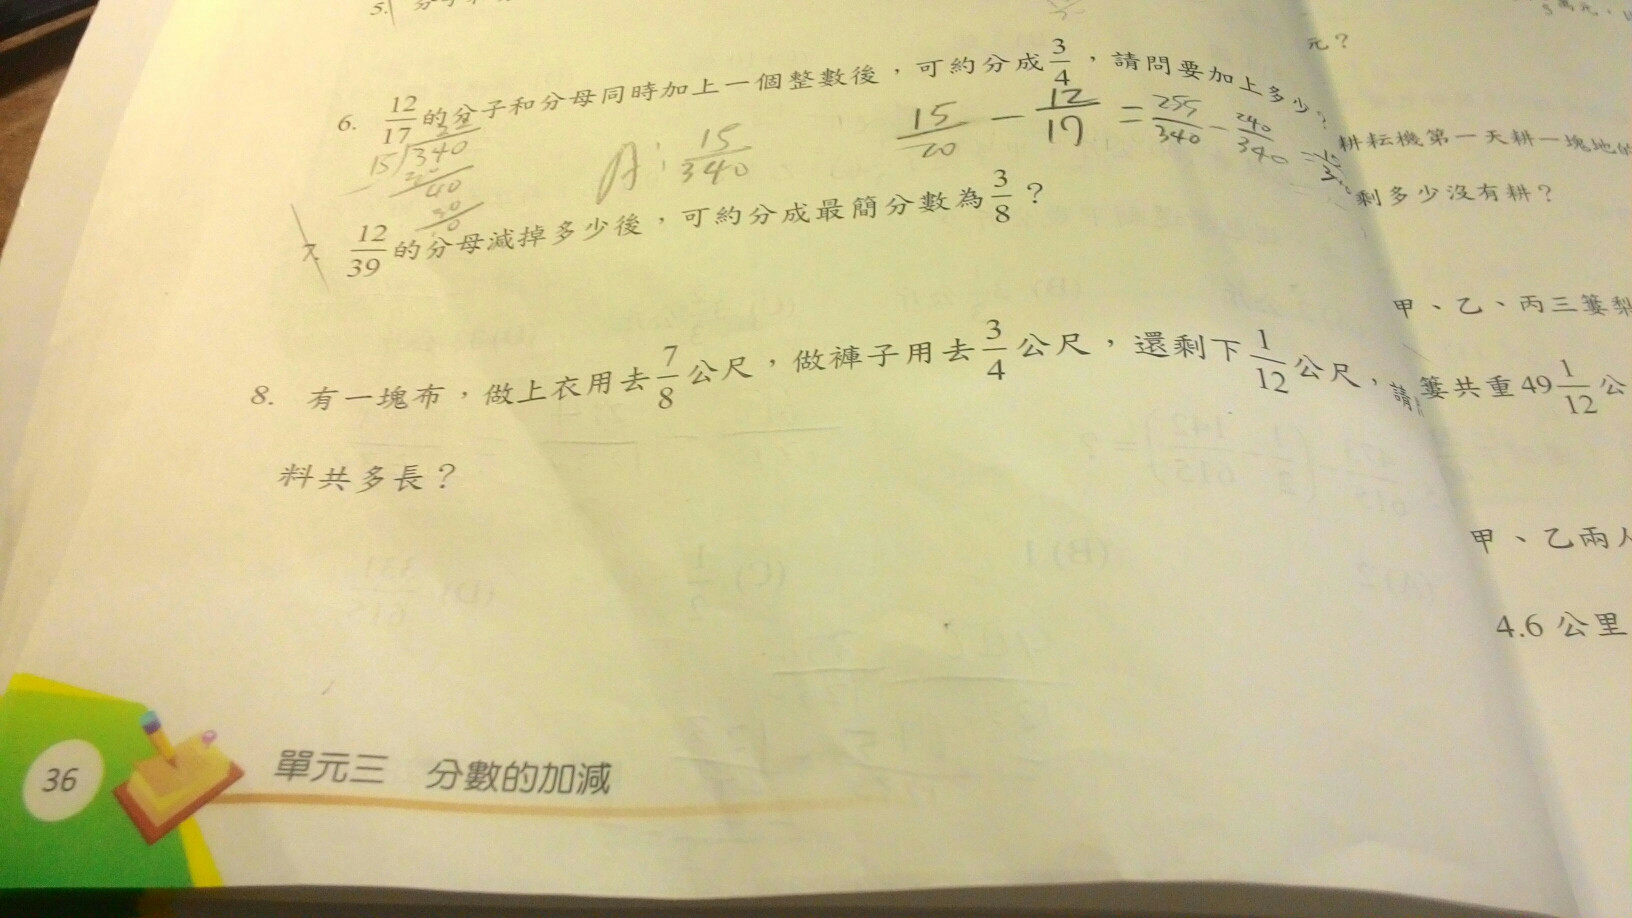 5.
6. 12/17 的分子和分母同時加上一個整數後，可約分成 3/4，請問要加上多少？
15/20 − 12/17 = 255/340 − 240/340
15)340
40
A: 15/340
7. 12/39 的分母減掉多少後，可約分成最簡分數為 3/8？
8. 有一塊布，做上衣用去 7/8 公尺，做褲子用去 3/4 公尺，還剩下 1/12 公尺，請
料共多長？
36
單元三 分數的加減
元？
耕耘機第一天耕一塊地的
剩多少沒有耕？
甲、乙、丙三簍梨
簍共重 49 1/12 公
甲、乙兩人
4.6 公里